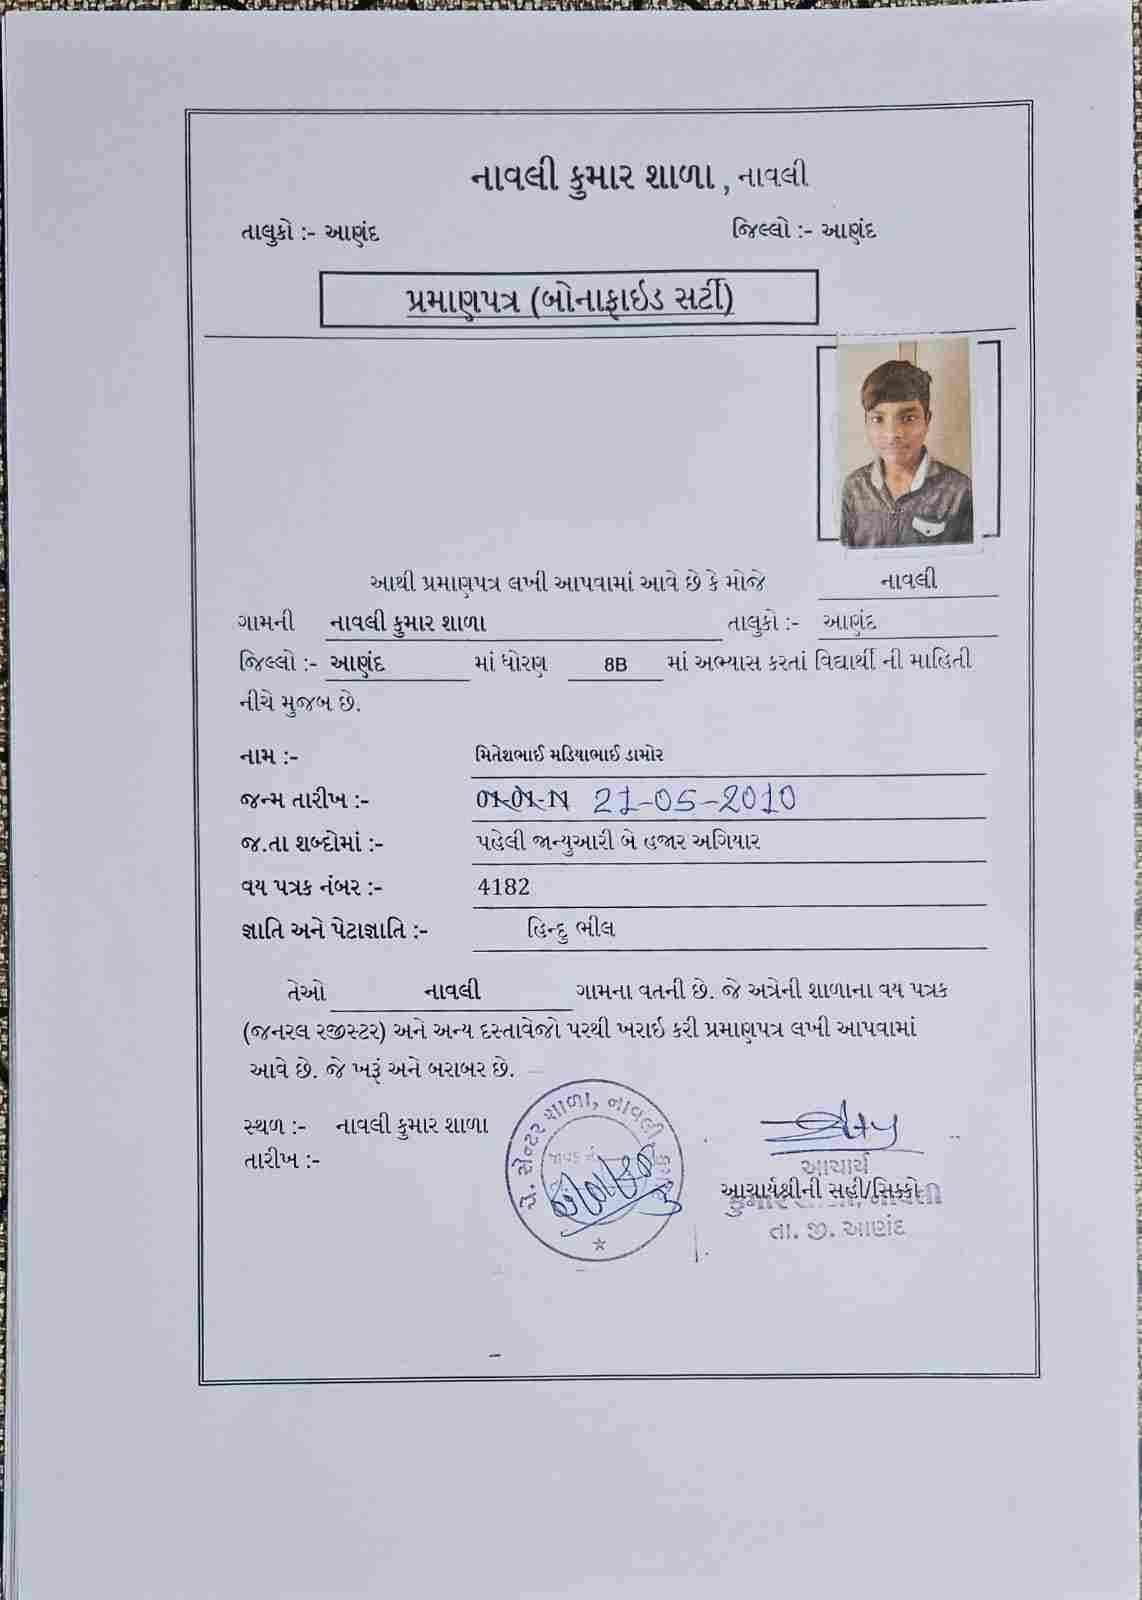 નાવલી કુમાર શાળા , નાવલી
તાલુકો :- આણંદ જિલ્લો :- આણંદ
પ્રમાણપત્ર (બોનાફાઇડ સર્ટી)
આથી પ્રમાણપત્ર લખી આપવામાં આવે છે કે મોજે નાવલી
ગામની નાવલી કુમાર શાળા તાલુકો :- આણંદ
જિલ્લો :- આણંદ માં ધોરણ 8B માં અભ્યાસ કરતાં વિદ્યાર્થી ની માહિતી
નીચે મુજબ છે.
નામ :- મિતેશભાઈ મડિયાભાઈ ડામોર
જન્મ તારીખ :- 01-01-11 21-05-2010
જ.તા શબ્દોમાં :- પહેલી જાન્યુઆરી બે હજાર અગિયાર
વય પત્રક નંબર :- 4182
જ્ઞાતિ અને પેટાજ્ઞાતિ :- હિન્દુ ભીલ
તેઓ નાવલી ગામના વતની છે. જે અત્રેની શાળાના વય પત્રક
(જનરલ રજીસ્ટર) અને અન્ય દસ્તાવેજો પરથી ખરાઇ કરી પ્રમાણપત્ર લખી આપવામાં
આવે છે. જે ખરૂં અને બરાબર છે.
સ્થળ :- નાવલી કુમાર શાળા
તારીખ :-
પે. સેન્ટર શાળા, નાવલી
આચાર્ય
આચાર્યશ્રીની સહી/સિક્કો
કુમાર શાળા, નાવલી
તા. જી. આણંદ